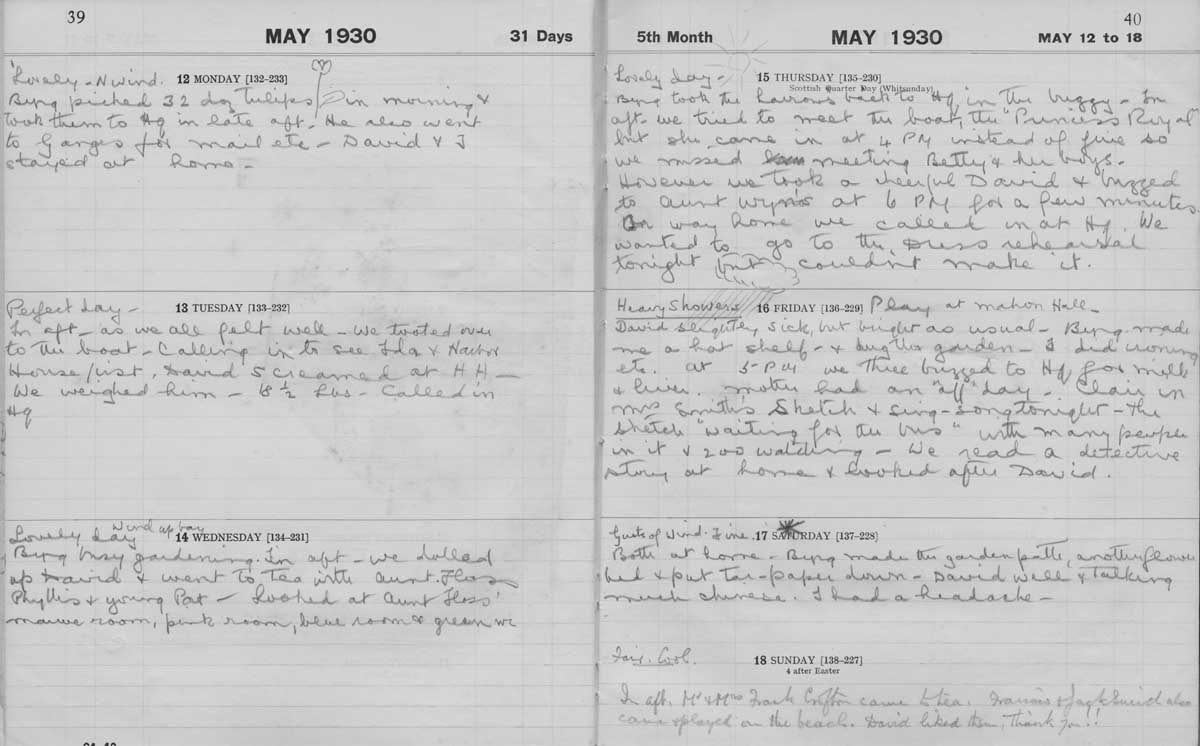 39
MAY 1930
31 Days
Lovely - N wind.
12 MONDAY [132-233]
Byng picked 32 doz tulips in morning &
took them to Hq in late aft. He also went
to Ganges for mail etc - David & I
stayed at home -
Perfect day -
13 TUESDAY [133-232]
In aft - as we all felt well - we tooted over
to the boat - Calling in to see Ida & Harbor
House first. David screamed at H H -
We weighed him - 8½ Lbs - Called in
Hq
Lovely day
Wind up bay
14 WEDNESDAY [134-231]
Byng busy gardening. In aft - we dolled
up David & went to tea with Aunt. Floss
Phyllis & young Pat - Looked at Aunt Floss'
mauve room, pink room, blue room & green wc
40
5th Month
MAY 1930
MAY 12 to 18
Lovely day -
15 THURSDAY [135-230]
Scottish Quarter Day (Whitsunday)
Byng took the harrows back to Hq in the buggy - In
aft. we tried to meet the boat, the "Princess Royal"
but she came in at 4 PM instead of five so
we missed meeting Betty & her boys.
However we took a cheerful David & buzzed
to Aunt Wyn's at 6 PM for a few minutes
On way home we called in at Hq. We
wanted to go to the Dress rehearsal
tonight but couldn't make it.
Heavy Showers
16 FRIDAY [136-229]
Play at Mahon Hall -
David slightly sick, but bright as usual - Byng made
me a hat shelf - & dug the garden - I did ironing
etc. at 5-PM we three buzzed to Hq for milk
& liver. Mother had an "off" day - Clair in
Mrs Smith's Sketch & sing-song tonight - the
sketch "Waiting for the bus" with many people
in it & 200 watching - We read a detective
story at home & looked after David.
Gusts of Wind. Fine.
17 SATURDAY [137-228]
Both at home - Byng made the garden path, another flower
bed & put tar-paper down - David well & talking
much chinese. I had a headache -
Fair. Cool.
18 SUNDAY [138-227]
4 after Easter
In aft. Mr & Mrs Frank Crofton came to tea. Francis & Jack Smith also
came & played on the beach. David liked them, thank you!!